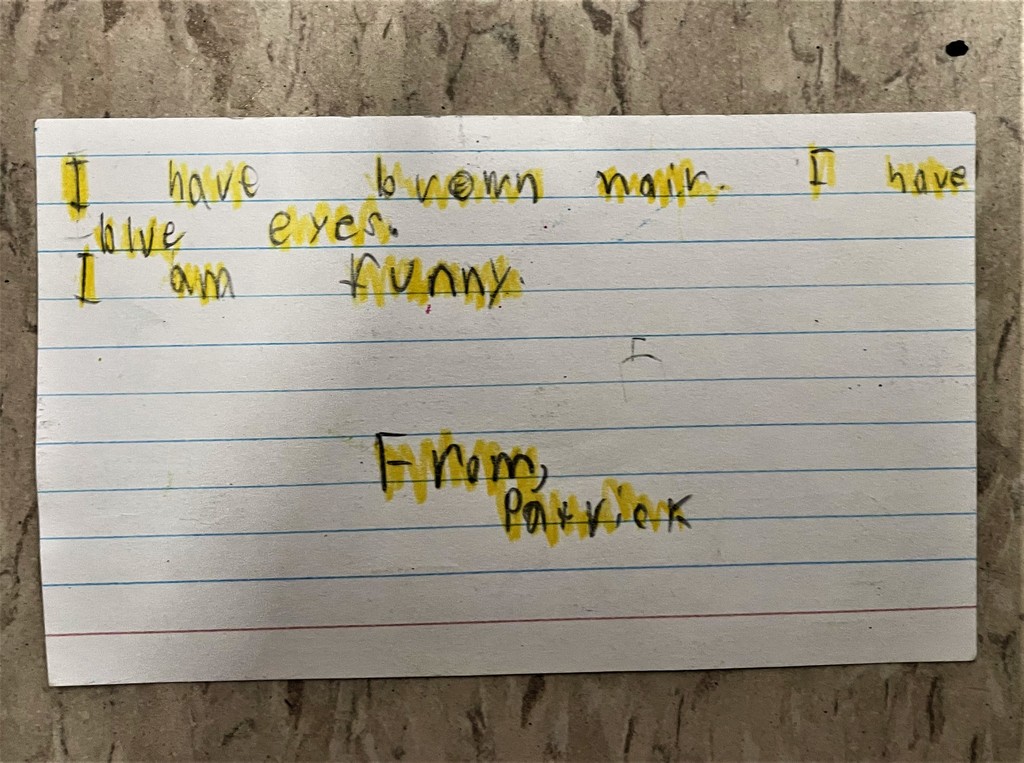 I have brown hair. I have
blue eyes.
I am funny.
From,
Patrick